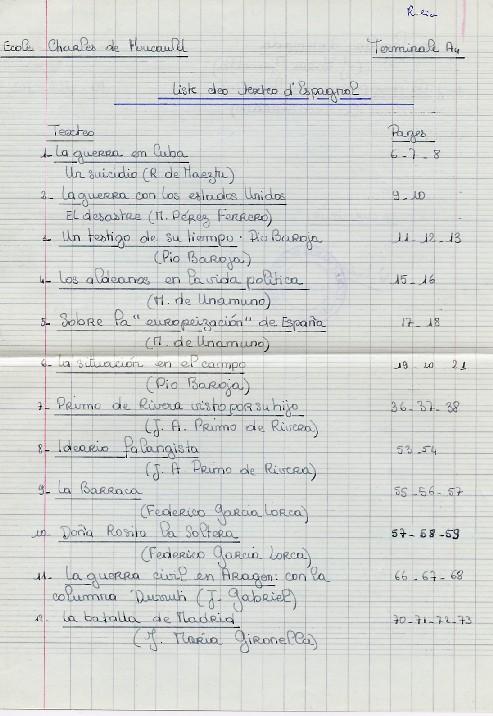 Ecole Charles de Foucauld Terminale A4
Liste des textes d'Espagnol
Textes Pages
1. La guerra en Cuba 6-7-8
Un suicidio (R. de Maeztu)
2. La guerra con los estados Unidos 9-10
El desastre (M. Pérez Ferrero)
3. Un testigo de su tiempo. Pío Baroja 11-12-13
(Pio Baroja)
4. Los aldeanos en la vida política 15-16
(M. de Unamuno)
5. Sobre la "europeización" de España 17-18
(M. de Unamuno)
6. La situación en el campo 19-20-21
(Pio Baroja)
7. Primo de Rivera visto por su hijo 36-37-38
(J. A. Primo de Rivera)
8. Ideario falangista 53-54
(J. A Primo de Rivera)
9. La Barraca 55-56-57
(Federico García Lorca)
10. Doña Rosita la Soltera 57-58-59
(Federico García Lorca)
11. La guerra civil en Aragon: con la 66-67-68
columna Durruti (J. Gabriel)
12. La batalla de Madrid 70-71-72-73
(J. María Gironella)